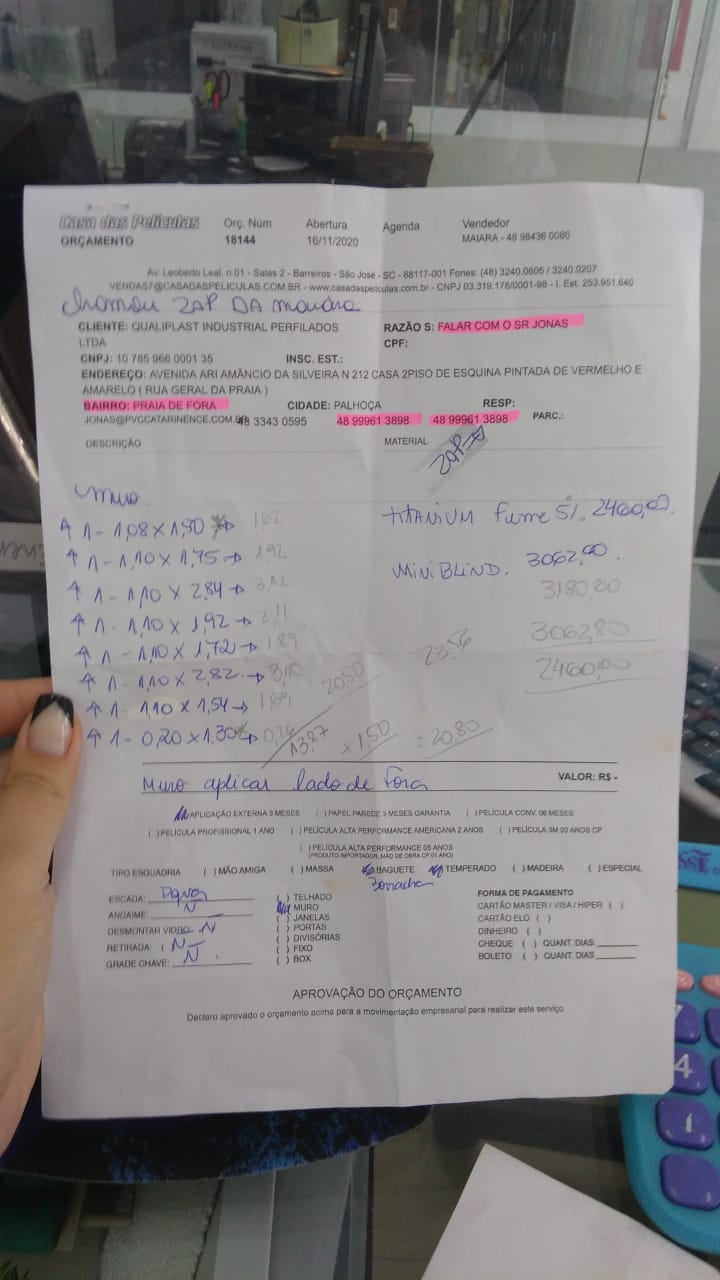 Casa das Películas
ORÇAMENTO
Orç. Núm
18144
Abertura
16/11/2020
Agenda
Vendedor
MAIARA - 48 98436 0080
Av. Leoberto Leal, n 01 - Salas 2 - Barreiros - São José - SC - 88117-001 Fones: (48) 3240.0605 / 3240.0207
VENDAS7@CASADASPELICULAS.COM.BR - www.casadaspeliculas.com.br - CNPJ 03.319.178/0001-98 - I. Est. 253.951.640
chamou ZAP DA
CLIENTE: QUALIPLAST INDUSTRIAL PERFILADOS
LTDA
RAZÃO S: FALAR COM O SR JONAS
CPF:
CNPJ: 10 785 966 0001 35 INSC. EST.:
ENDEREÇO: AVENIDA ARI AMÂNCIO DA SILVEIRA N 212 CASA 2PISO DE ESQUINA PINTADA DE VERMELHO E
AMARELO ( RUA GERAL DA PRAIA )
BAIRRO: PRAIA DE FORA CIDADE: PALHOÇA RESP:
JONAS@PVCCATARINENCE.COM.BR 48 3343 0595 48 99961 3898 48 99961 3898 PARC.:
DESCRIÇÃO MATERIAL
ZAP
Muro
1- 1,08 x 1,50 → 1,62
1- 1,10 x 1,75 → 1,92
1- 1,10 x 2,84 → 3,12
1- 1,10 x 1,92 → 2,11
1- 1,10 x 1,72 → 1,89
1- 1,10 x 2,82 → 3,10
1- 1,10 x 1,54 → 1,69
1- 0,20 x 1,30 → 0,26
TITANIUM Fume 5% 2460,00.
MINI BLIND. 3062,80.
3180,60
3062,80
2460,00
23,56
20,50
13,87 x 1,50 = 20,80
Muro aplicar lado de fora
VALOR: R$ -
APLICAÇÃO EXTERNA 3 MESES ( ) PAPEL PAREDE 3 MESES GARANTIA ( ) PELÍCULA CONV. 06 MESES
( ) PELÍCULA PROFISSIONAL 1 ANO ( ) PELÍCULA ALTA PERFORMANCE AMERICANA 2 ANOS ( ) PELÍCULA 3M 03 ANOS CP
( ) PELÍCULA ALTA PERFORMANCE 05 ANOS
(PRODUTO IMPORTADOR, MÃO DE OBRA CP 01 ANO)
TIPO ESQUADRIA ( ) MÃO AMIGA ( ) MASSA BAGUETE TEMPERADO ( ) MADEIRA ( ) ESPECIAL
Borracha
ESCADA:
ANDAIME: N
DESMONTAR VIDRO: N
RETIRADA: ( N
GRADE CHAVE: N
( ) TELHADO
MURO
( ) JANELAS
( ) PORTAS
( ) DIVISÓRIAS
( ) FIXO
( ) BOX
FORMA DE PAGAMENTO
CARTÃO MASTER / VISA / HIPER ( )
CARTÃO ELO ( )
DINHEIRO ( )
CHEQUE ( ) QUANT. DIAS:
BOLETO ( ) QUANT. DIAS
APROVAÇÃO DO ORÇAMENTO
Declaro aprovado o orçamento acima para a movimentação empresarial para realizar este serviço
4
1